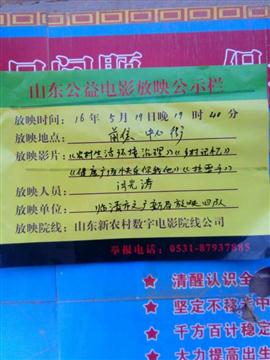 日问题
但
山东公益电影放映公示栏
放映时间：16年5月19日晚19时40分
放映地点：前侯 中心街
放映影片：《农村生活环境治理》《乡村记忆》
《健康广场快乐你我他》《
放映人员：
放映单位：临清市文广新局放映四队
放映院线：山东新农村数字电影院线公司
举报电话：0531-87937885
★ 清醒认识全
★ 坚定不移
★ 千方百计稳定
★ 大力提高出生